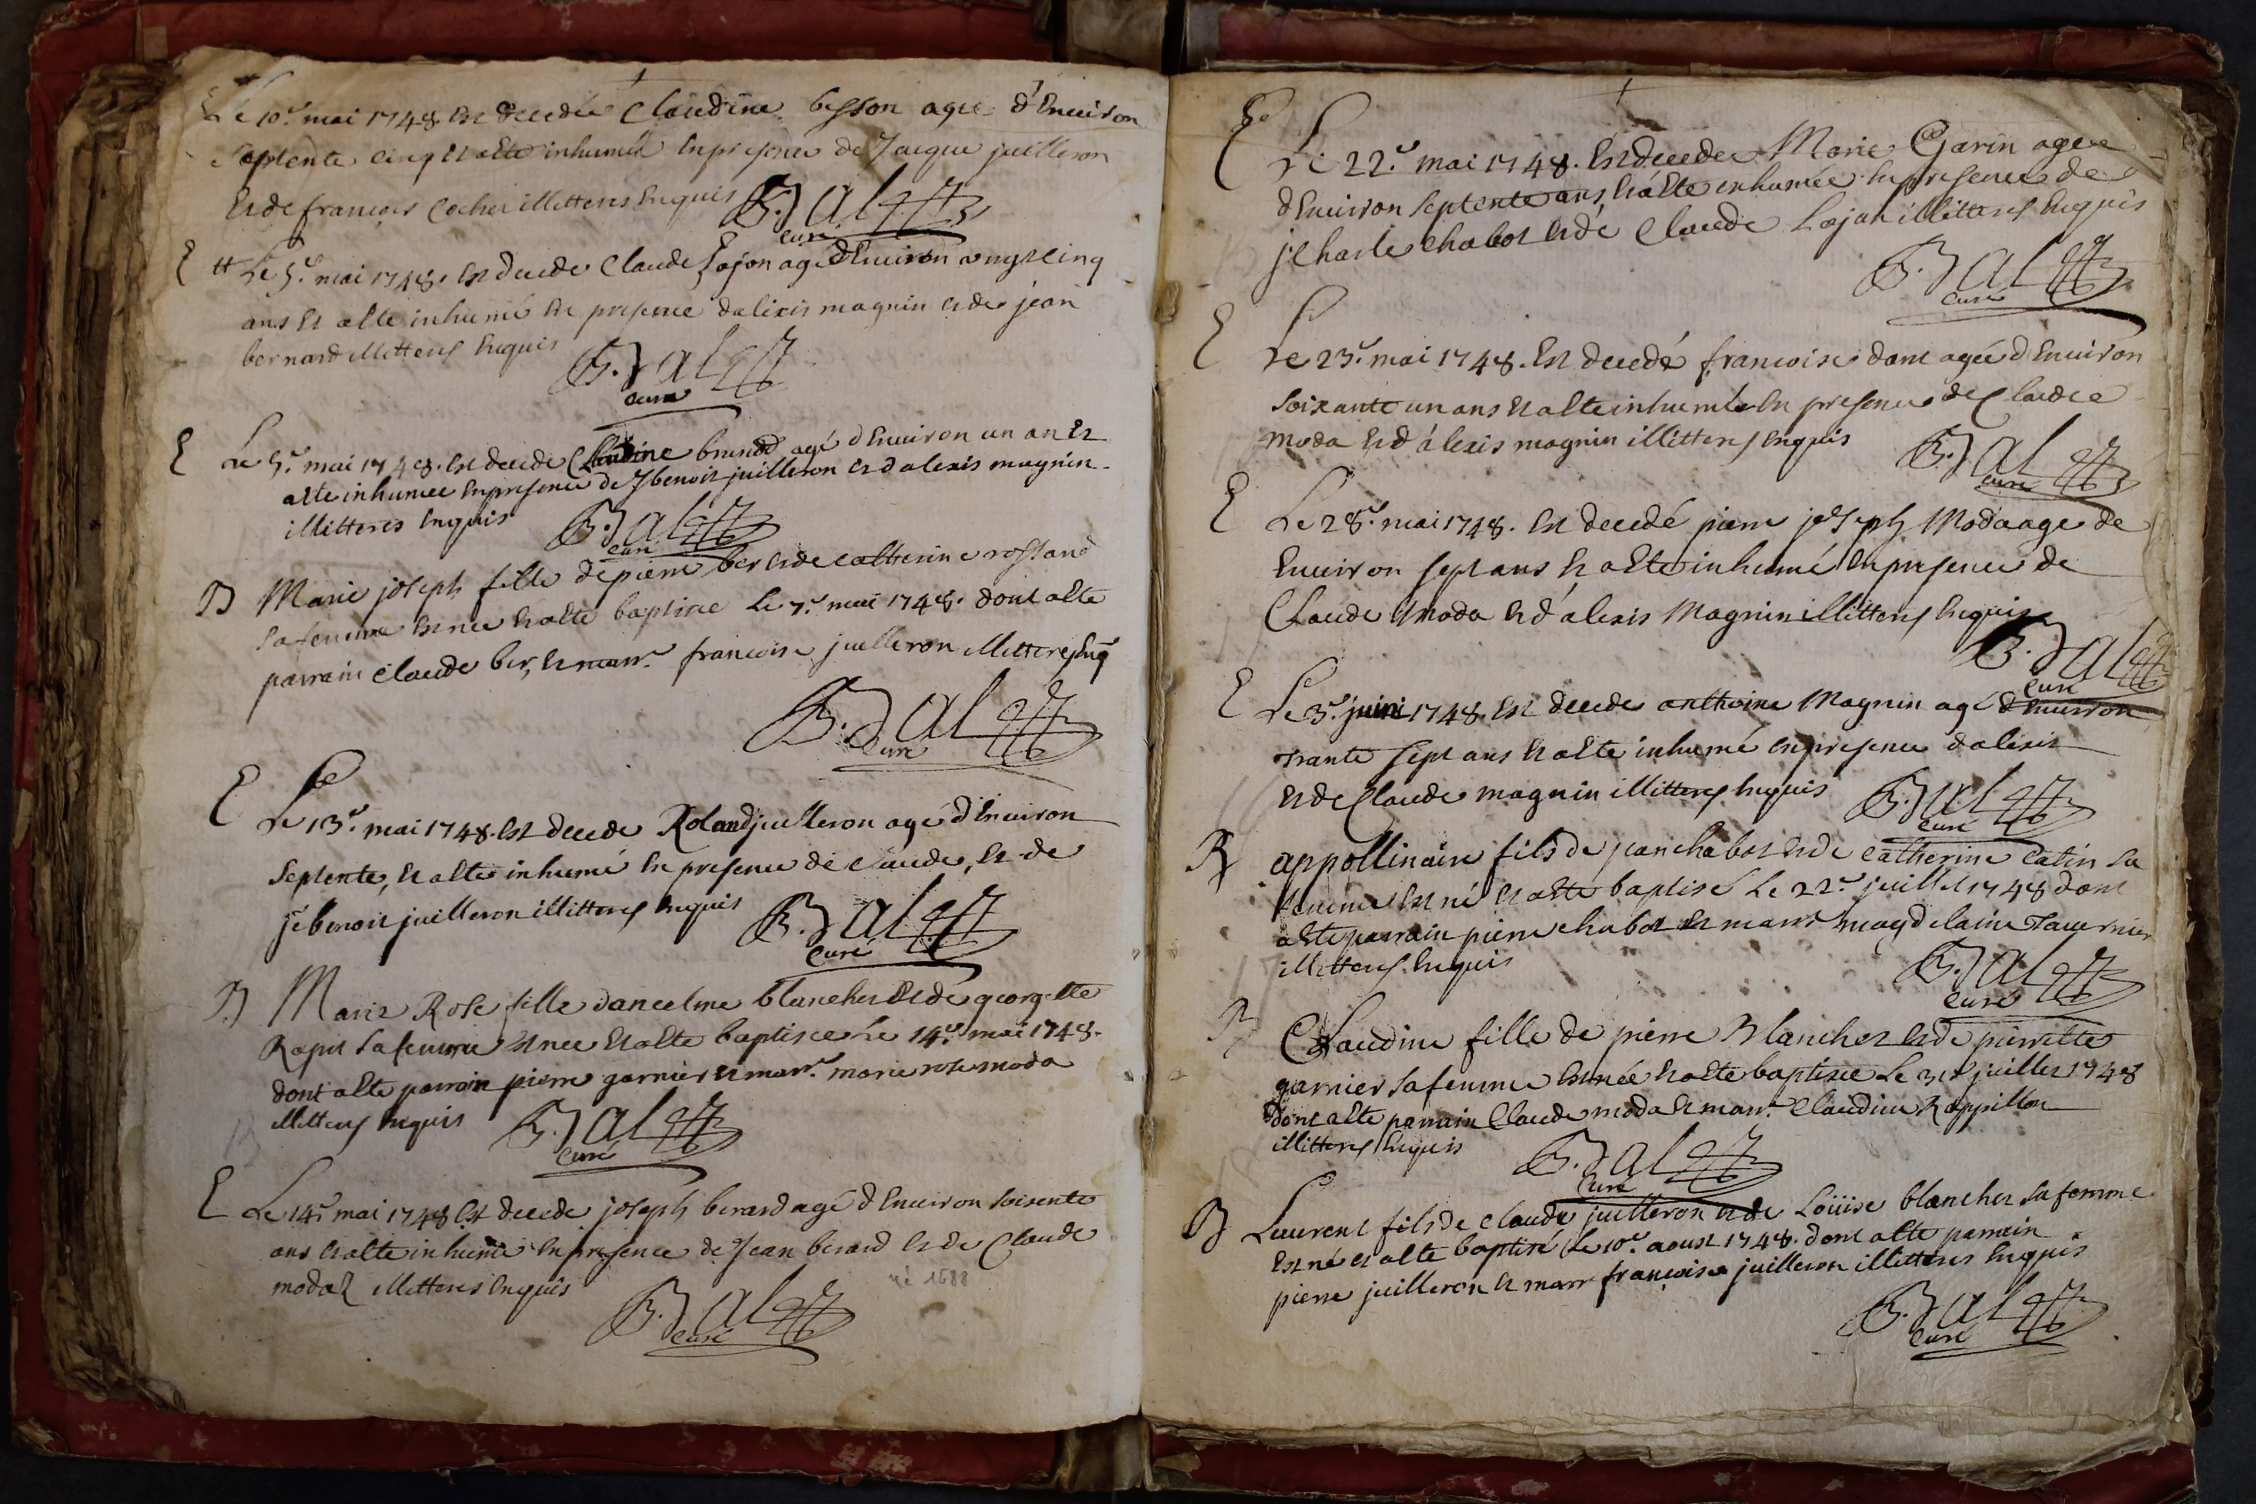 E Le 10.e mai 1748. Est decedée Claudine besson agée d'Environ
septente cinq Et a Eté inhumée En presence de Jacque juilleron
Et de françois Cochet illitteres Enquis B. Jal
curé
E Le 5.e mai 1748. Est decede Claude Lojon agé d'Environ vingt cinq
ans Et a Eté inhumé En presence d'alexis magnin et de jean
bernard illitteres Enquis B. Jal
curé
E Le 5.e mai 1748. Est decede Claudine agé d'Environ un an Et
a Eté inhumée En presence de J benoit juilleron et d'alexis magnin
illitteres Enquis B. Jal
curé
B Marie joseph fille de pierre ber et de catherine rostand
sa femme Est nee Et a Eté baptisee Le 7.e mai 1748. dont a Eté
parrain Claude ber, Et marr.e francoise juilleron illitteres Enq
B. Jal
curé
E Le 13.e mai 1748. Est decede Roland juilleron agé d'Environ
septente, Et a Eté inhumé En presence de Claude, Et de
je benoit juilleron illitteres Enquis B. Jal
curé
B Marie Rose fille d'ancelme blanchet Et de georgette
Rapit sa femme Est nee Et a Eté baptisee Le 14.e mai 1748.
dont a Eté parrain pierre garnier Et marr.e marie rose moda
illitteres Enquis B. Jal
curé
E Le 14.e mai 1748 Est decede joseph berard agé d'Environ soisente
ans Et a Eté inhumé En presence de Jean berard Et de Claude
modaz illitteres Enquis né 1688
B. Jal
curé
E Le 22.e mai 1748. Est decedee Marie Garin agee
d'Environ septente ans, Et a Eté inhumée En presence de
j Charle Chabot et de Claude Lojon illitteres Enquis
B. Jal
curé
E Le 23.e mai 1748. Est decedé francoise dont agée d'Environ
soixante un ans Et a Eté inhumée En presence de Claude
moda Et d'alexis magnin illitteres Enquis B. Jal
curé
E Le 28.e mai 1748. Est decedé pierre joseph Moda age de
Environ sept ans Et a Eté inhumé En presence de
Claude Moda Et d'alexis Magnin illitteres Enquis
B. Jal
curé
E Le 3.e juin 1748. Est decede anthoine Magnin agé d'Environ
trante sept ans Et a Eté inhumé En presence d'alexis
Et de Claude magnin illitteres Enquis B. Jal
curé
B appollinaire fils de jean chabot et de catherine Catin sa
femme Est né Et a Eté baptisé Le 22.e juillet 1748 dont
a Eté parrain pierre chabot Et marr.e magdelaine Tavernier
illitteres Enquis B. Jal
curé
B Claudine fille de pierre Blanchet et de pierrette
garnier sa femme Est née Et a Eté baptisée Le juillet 1748
Dont a Eté parrain Claude moda Et marr.e Claudine Rappillon
illitteres Enquis B. Jal
curé
B Laurent fils de Claude juilleron et de Loüise blanchet sa femme
Est né et a Eté baptisé Le 10.e aoust 1748. dont a Eté parrain
pierre juilleron Et marr francoise juilleron illitteres Enquis
B. Jal
curé